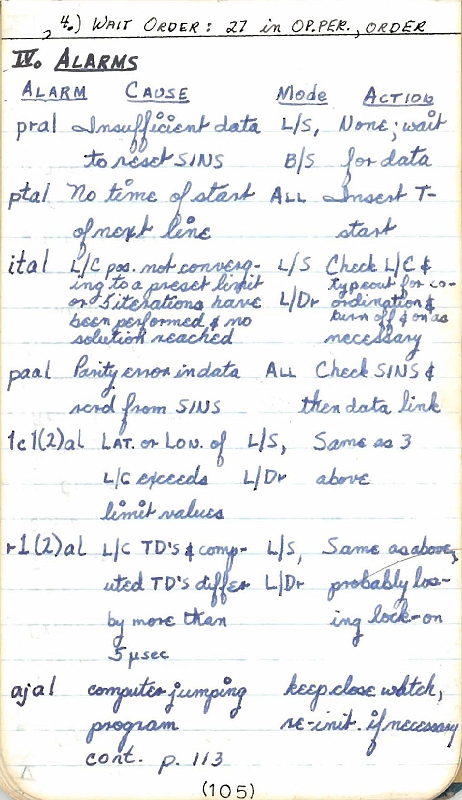 4.) WAIT ORDER: 27 in OP.PER., ORDER
IV. ALARMS
ALARM CAUSE Mode ACTION
pral Insufficient data L/S, None; wait
to reset SINS B/S for data
ptal No time of start ALL Insert T-
of next line start
ital L/C pos. not converg- L/S Check L/C &
ing to a preset limit typeout for co-
or 5 iterations have L/Dr ordination &
been performed & no turn off & on as
solution reached necessary
paal Parity error in data ALL Check SINS &
scrd from SINS then data link
lc1(2)al LAT. or LON. of L/S, Same as 3
L/C exceeds L/Dr above
limit values
r1(2)al L/C TD's & comp- L/S, Same as above,
uted TD's differ L/Dr probably los-
by more than ing lock-on
5 µsec
ajal computer jumping keep close watch,
program re-init. if necessary
cont. p. 113
(105)